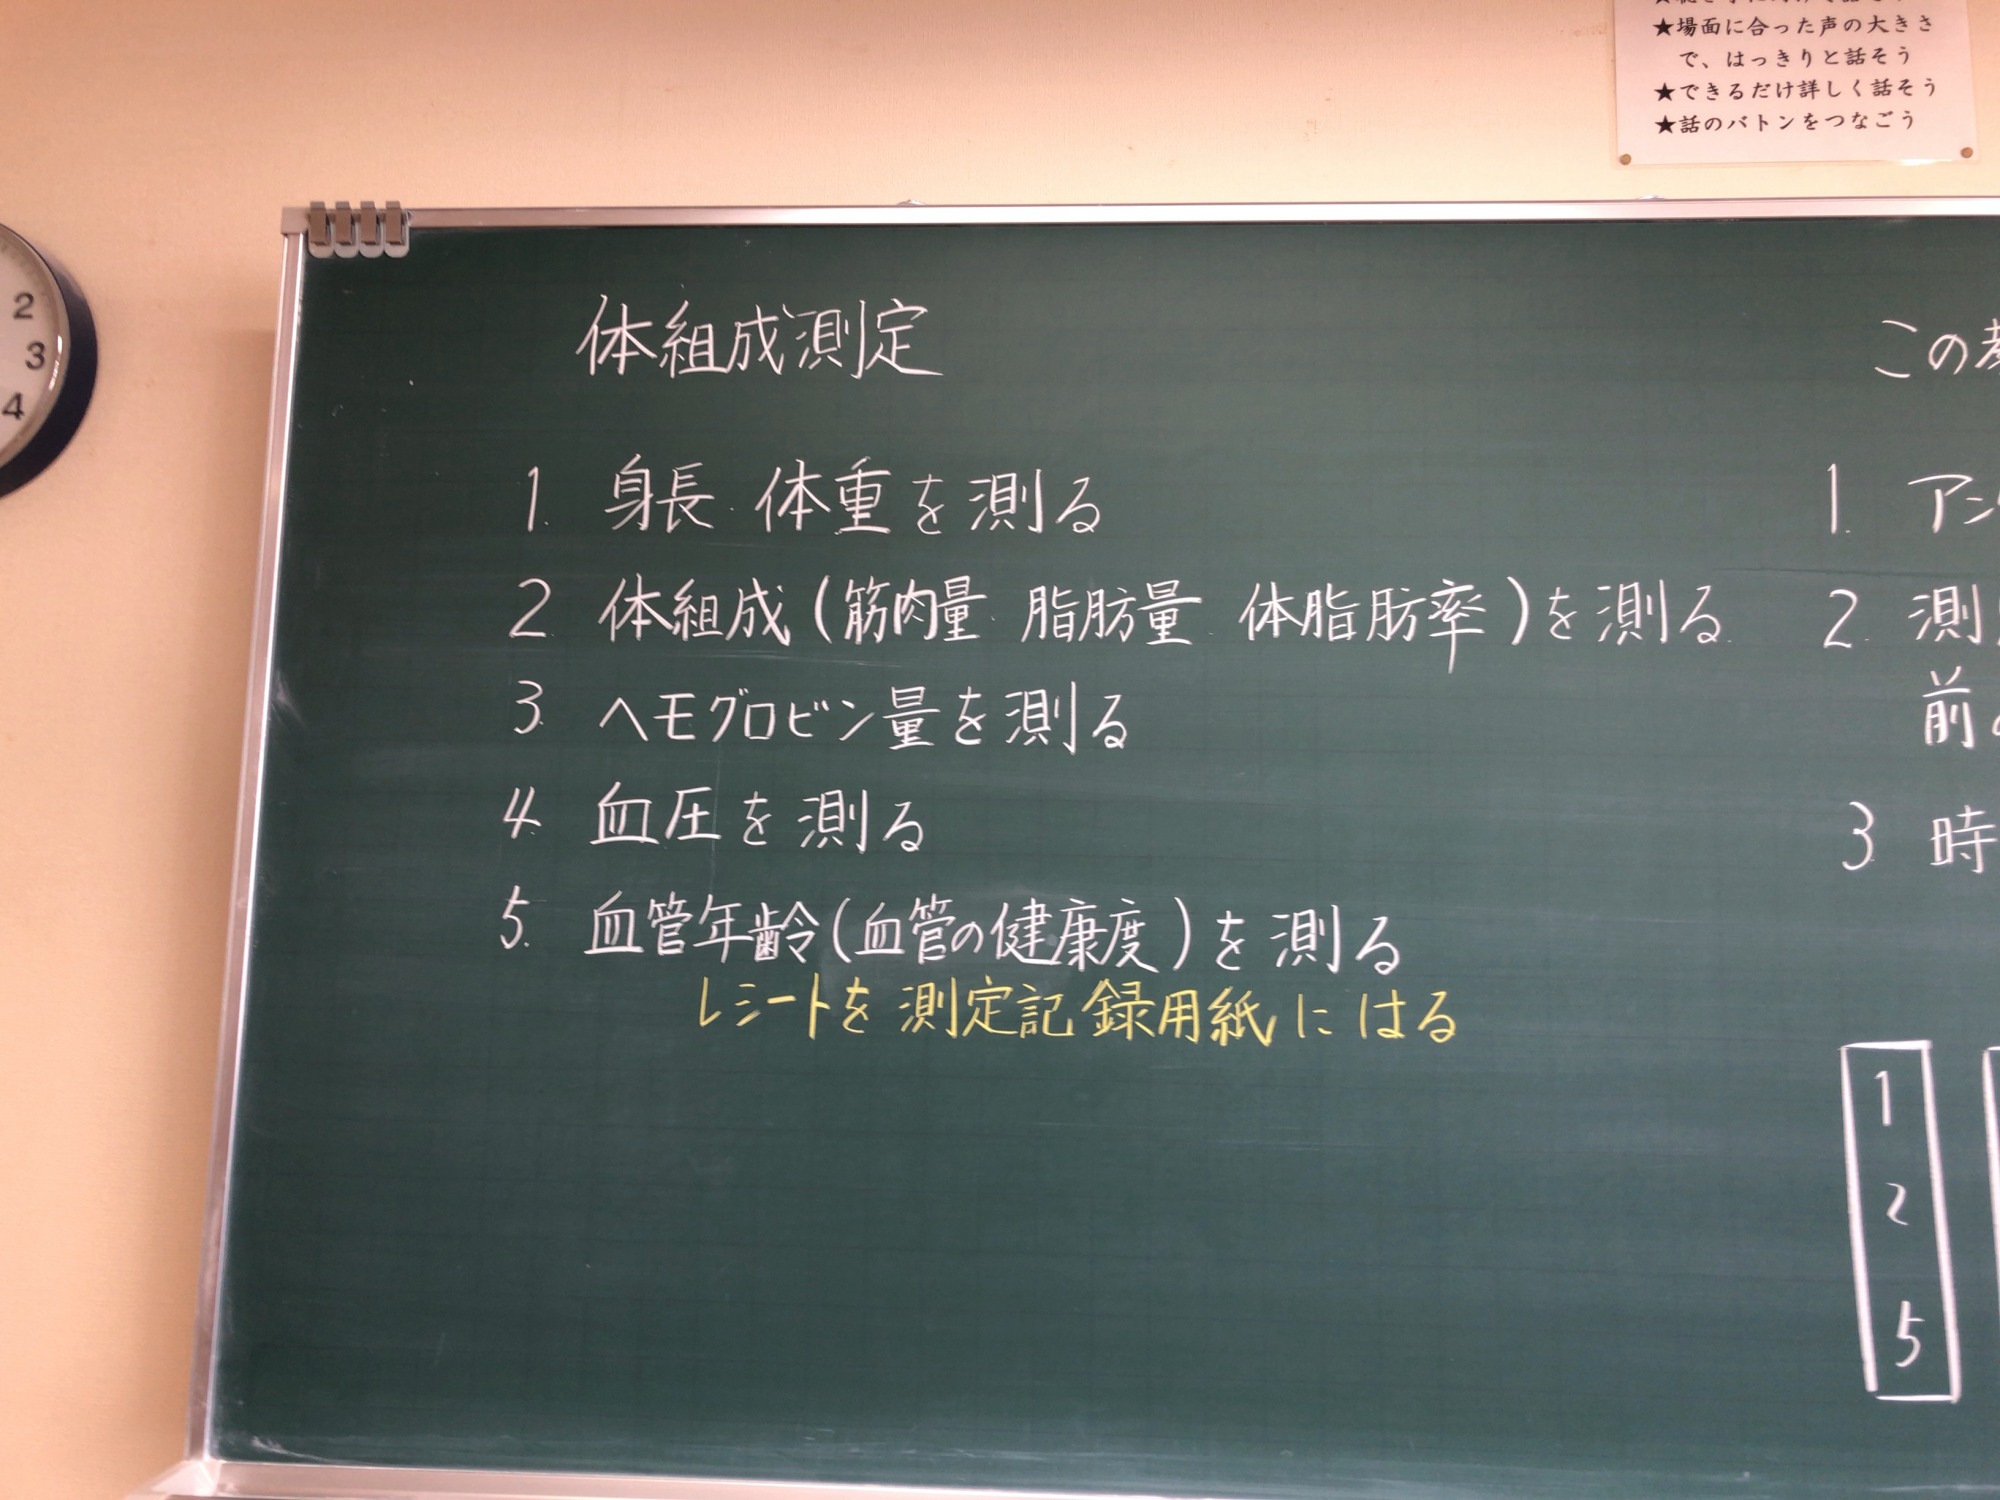 ★場面に合った声の大きさ
で、はっきりと話そう
★できるだけ詳しく話そう
★話のバトンをつなごう
2
3
4
体組成測定
1. 身長・体重を測る
2. 体組成(筋肉量・脂肪量・体脂肪率)を測る
3. ヘモグロビン量を測る
4. 血圧を測る
5. 血管年齢(血管の健康度)を測る
レシートを測定記録用紙にはる
この
1. アン
2. 測
前の
3 時
1
2
5